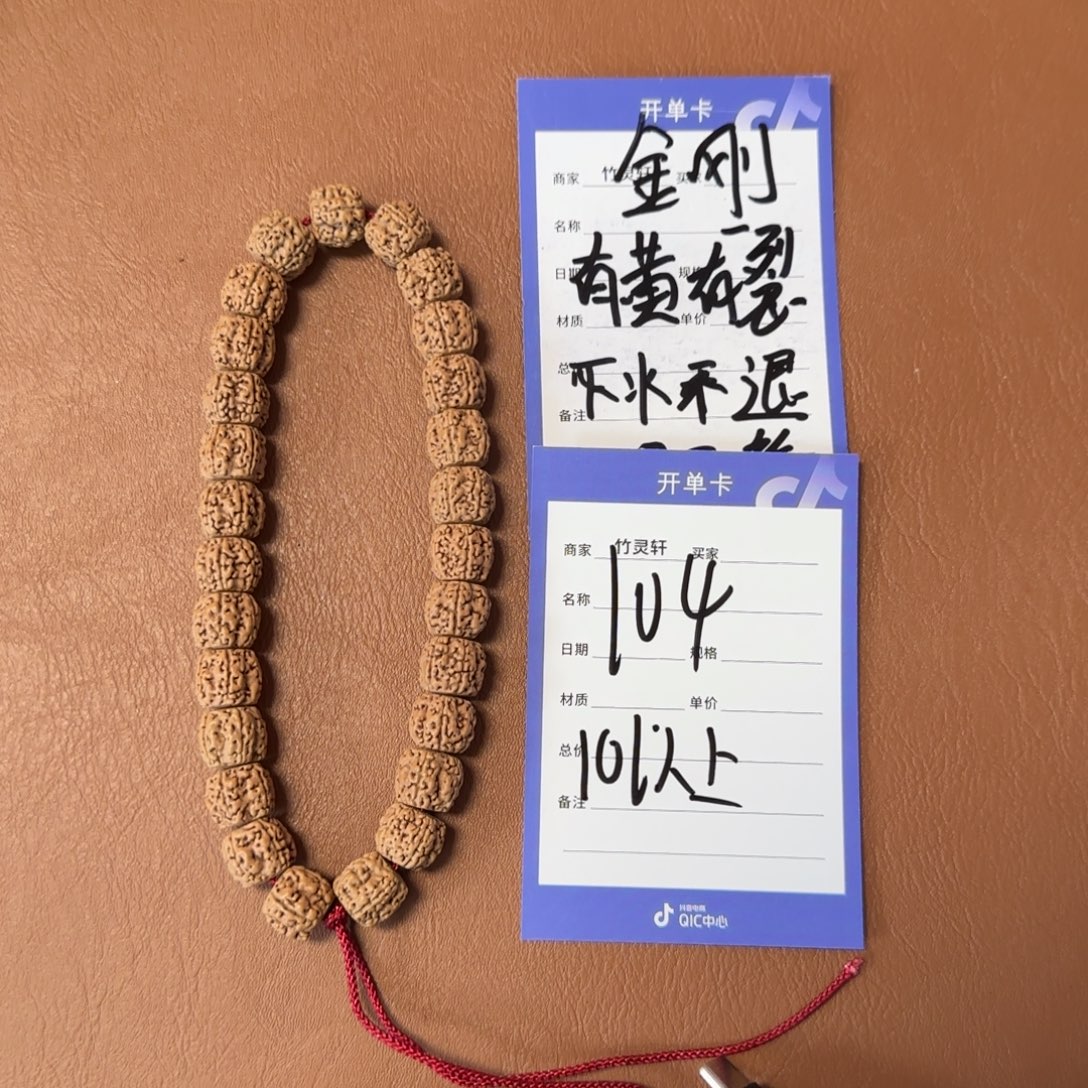 开单卡
金刚
商家 竹灵轩 买家
名称
有黄有裂
日期 规格
材质 单价
下水不退
备注
开单卡
商家 竹灵轩 买家
名称
104
日期 规格
材质 单价
总价
10以上
备注
抖音电商
QIC中心